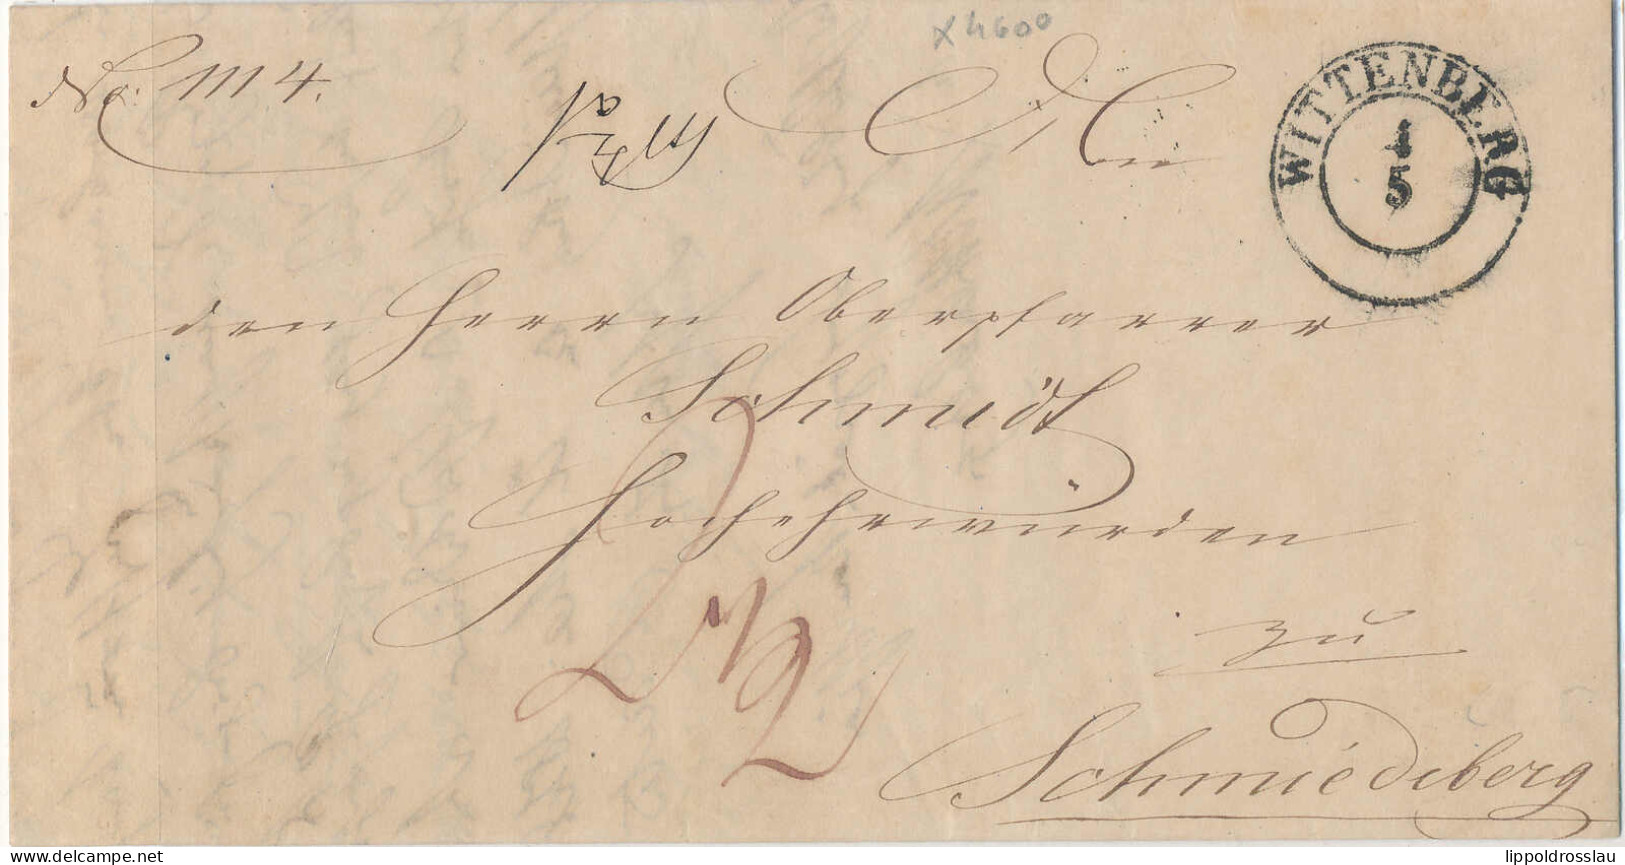 x 4600
No: 1114.
An
WITTENBERG
1
5
den Herrn Oberpfarrer
Schmidt
Hochehrwürden
zu
Schmiedeberg
lippoldrosslau